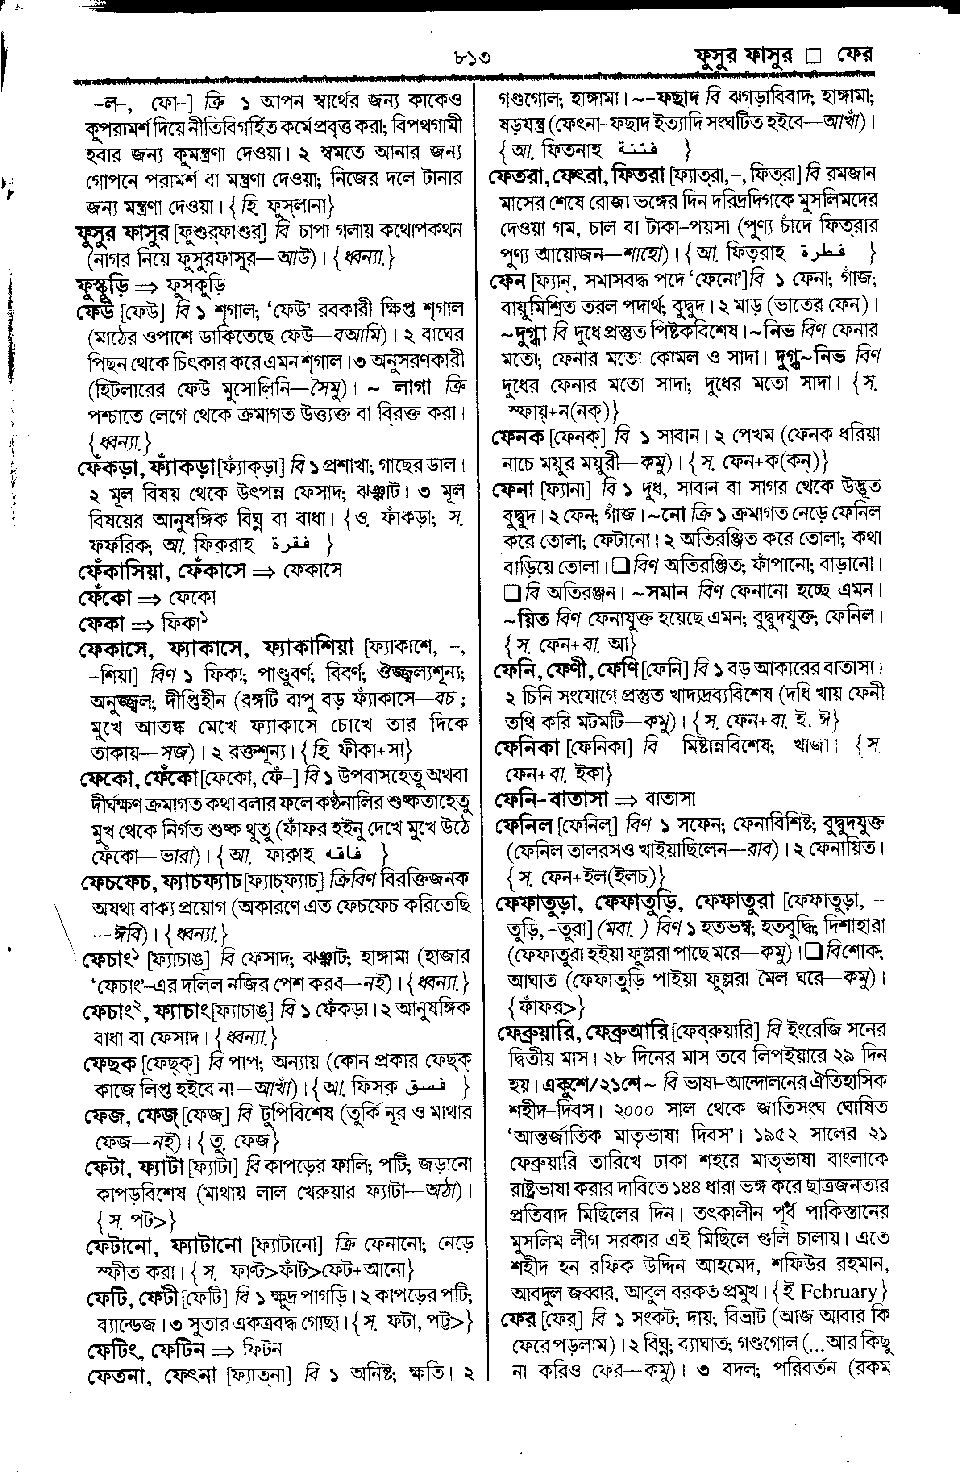 ৮১৩
ফুসুর ফাসুর □ ফের
–ল–, ফো–] ক্রি ১ আপন স্বার্থের জন্য কাকেও
কুপরামর্শ দিয়ে নীতিবিগর্হিত কর্মে প্রবৃত্ত করা; বিপথগামী
হবার জন্য কুমন্ত্রণা দেওয়া। ২ স্বমতে আনার জন্য
গোপনে পরামর্শ বা মন্ত্রণা দেওয়া; নিজের দলে টানার
জন্য মন্ত্রণা দেওয়া। {হি. ফুস্‌লানা}
ফুসুর ফাসুর [ফুশুর্‌ফাশুর্‌] বি চাপা গলায় কথোপকথন
(নাগর নিয়ে ফুসুরফাসুর—আউ)। {ধ্বন্যা.}
ফুস্কুড়ি ⇒ ফুসকুড়ি
ফেউ [ফেউ] বি ১ শৃগাল; ‘ফেউ’ রবকারী ক্ষিপ্ত শৃগাল
(মাঠের ওপাশে ডাকিতেছে ফেউ—বআমি)। ২ বাঘের
পিছন থেকে চিৎকার করে এমন শৃগাল। ৩ অনুসরণকারী
(হিটলারের ফেউ মুসোলিনি—সৈমু)। ~ লাগা ক্রি
পশ্চাতে লেগে থেকে ক্রমাগত উত্ত্যক্ত বা বিরক্ত করা।
{ধ্বন্যা.}
ফেঁকড়া, ফ্যাঁকড়া [ফ্যাঁক্‌ড়া] বি ১ প্রশাখা; গাছের ডাল।
২ মূল বিষয় থেকে উৎপন্ন ফেসাদ; ঝঞ্ঝাট। ৩ মূল
বিষয়ের আনুষঙ্গিক বিঘ্ন বা বাধা। {ও. ফাঁকড়া; স.
ফর্ফরিক; আ. ফিকরাহ فقرة }
ফেঁকাসিয়া, ফেঁকাসে ⇒ ফেকাসে
ফেঁকো ⇒ ফেকো
ফেকা ⇒ ফিকা১
ফেকাসে, ফ্যাকাসে, ফ্যাকাশিয়া [ফ্যাকাশে, –,
–শিয়া] বিণ ১ ফিকা; পাণ্ডুবর্ণ; বিবর্ণ; ঔজ্জ্বল্যশূন্য;
অনুজ্জ্বল; দীপ্তিহীন (রঙ্গটি বাপু বড় ফ্যাঁকাসে—বচ;
মুখে আতঙ্ক মেখে ফ্যাকাসে চোখে তার দিকে
তাকায়—সজ)। ২ রক্তশূন্য। {হি. ফীকা+সা}
ফেকো, ফেঁকো [ফেকো, ফেঁ–] বি ১ উপবাসহেতু অথবা
দীর্ঘক্ষণ ক্রমাগত কথা বলার ফলে কণ্ঠনালির শুষ্কতাহেতু
মুখ থেকে নির্গত শুষ্ক থুতু (ফাঁফর হইনু দেখে মুখে উঠে
ফেঁকো—ভারা)। {আ. ফাক়াহ فاقه }
ফেচফেচ, ফ্যাচফ্যাচ [ফ্যাচ্‌ফ্যাচ্‌] ক্রিবিণ বিরক্তিজনক
অযথা বাক্য প্রয়োগ (অকারণে এত ফেচফেচ করিতেছি
—ঈবি)। {ধ্বন্যা.}
ফেচাং১ [ফ্যাচাঙ্‌] বি ফেসাদ; ঝঞ্ঝাট; হাঙ্গামা (হাজার
‘ফেচাং’–এর দলিল নজির পেশ করব—নই)। {ধ্বন্যা.}
ফেচাং২, ফ্যাচাং [ফ্যাচাঙ্‌] বি ১ ফেঁকড়া। ২ আনুষঙ্গিক
বাধা বা ফেসাদ। {ধ্বন্যা.}
ফেছক [ফেছ্‌ক্‌] বি পাপ; অন্যায় (কোন প্রকার ফেছ্ক
কাজে লিপ্ত হইবে না—আখাঁ)। {আ. ফিস্ক় فسق }
ফেজ, ফেজ় [ফেজ্‌] বি টুপিবিশেষ (তুর্কি নূর ও মাথার
ফেজ—নই)। {তু. ফেজ়}
ফেটা, ফ্যাটা [ফ্যাটা] বি কাপড়ের ফালি; পটি; জড়ানো
কাপড়বিশেষ (মাথায় লাল খেরুয়ার ফ্যাটা—অঠা)।
{স. পট>}
ফেটানো, ফ্যাটানো [ফ্যাটানো] ক্রি ফেনানো; নেড়ে
স্ফীত করা। {স. ফাণ্ট>ফাঁট>ফেট+আনো}
ফেটি, ফেটী [ফেটি] বি ১ ক্ষুদ্র পাগড়ি। ২ কাপড়ের পটি;
ব্যান্ডেজ। ৩ সুতার একত্রবদ্ধ গোছা। {স. ফটা, পট্ট>}
ফেটিং, ফেটিন ⇒ ফিটন
ফেতনা, ফেৎনা [ফ্যাত্‌না] বি ১ অনিষ্ট; ক্ষতি। ২
গণ্ডগোল; হাঙ্গামা। ~–ফছাদ বি ঝগড়াবিবাদ; হাঙ্গামা;
ষড়যন্ত্র (ফেৎনা–ফছাদ ইত্যাদি সংঘটিত হইবে—আখাঁ)।
{আ. ফিতনাহ فتنة }
ফেতরা, ফেৎরা, ফিতরা [ফ্যাত্‌রা,–, ফিত্‌রা] বি রমজান
মাসের শেষে রোজা ভঙ্গের দিন দরিদ্রদিগকে মুসলিমদের
দেওয়া গম, চাল বা টাকা–পয়সা (পুণ্য চাঁদে ফিতরার
পুণ্য আয়োজন—শাহো)। {আ. ফিত়রাহ فطرة }
ফেন [ফ্যান্‌, সমাসবদ্ধ পদে ‘ফেনো’] বি ১ ফেনা; গাঁজ;
বায়ুমিশ্রিত তরল পদার্থ; বুদ্বুদ। ২ মাড় (ভাতের ফেন)।
~দুগ্ধা বি দুধে প্রস্তুত পিষ্টকবিশেষ। ~নিভ বিণ ফেনার
মতো; ফেনার মতো কোমল ও সাদা। দুগ্ধ~নিভ বিণ
দুধের ফেনার মতো সাদা; দুধের মতো সাদা। {স.
স্ফায়্‌+ন(নক্‌)}
ফেনক [ফেনক্‌] বি ১ সাবান। ২ পেখম (ফেনক ধরিয়া
নাচে ময়ূর ময়ূরী—কমু)। {স. ফেন+ক(কন্‌)}
ফেনা [ফ্যানা] বি ১ দুধ, সাবান বা সাগর থেকে উদ্ভূত
বুদ্বুদ। ২ ফেন; গাঁজ। ~নো ক্রি ১ ক্রমাগত নেড়ে ফেনিল
করে তোলা; ফেটানো। ২ অতিরঞ্জিত করে তোলা; কথা
বাড়িয়ে তোলা। ❏ বিণ অতিরঞ্জিত; ফাঁপানো; বাড়ানো।
❏ বি অতিরঞ্জন। ~সমান বিণ ফেনানো হচ্ছে এমন।
~য়িত বিণ ফেনাযুক্ত হয়েছে এমন; বুদ্বুদযুক্ত; ফেনিল।
{স. ফেন+বা. আ}
ফেনি, ফেণী, ফেণি [ফেনি] বি ১ বড় আকারের বাতাসা।
২ চিনি সংযোগে প্রস্তুত খাদ্যদ্রব্যবিশেষ (দধি খায় ফেনী
তথি করি মটমটি—কমু)। {স. ফেন+বা. ই. ঈ}
ফেনিকা [ফেনিকা] বি মিষ্টান্নবিশেষ; খাজা। {স.
ফেন+বা. ইকা}
ফেনি–বাতাসা ⇒ বাতাসা
ফেনিল [ফেনিল্‌] বিণ ১ সফেন; ফেনাবিশিষ্ট; বুদ্বুদযুক্ত
(ফেনিল তালরসও খাইয়াছিলেন—রাব)। ২ ফেনায়িত।
{স. ফেন+ইল(ইলচ্‌)}
ফেফাতুড়া, ফেফাতুড়ি, ফেফাতুরা [ফেফাতুড়া, –
তুড়ি, –তুরা] (মবা.) বিণ ১ হতভম্ব; হতবুদ্ধি; দিশাহারা
(ফেফাতুরা হইয়া ফুল্লরা পাছে মরে—কমু)। ❏ বি শোক;
আঘাত (ফেফাতুড়ি পাইয়া ফুল্লরা মৈল ঘরে—কমু)।
{ফাঁফর>}
ফেব্রুয়ারি, ফেব্রুআরি [ফেব্‌রুয়ারি] বি ইংরেজি সনের
দ্বিতীয় মাস। ২৮ দিনের মাস তবে লিপইয়ারে ২৯ দিন
হয়। একুশে/২১শে ~ বি ভাষা–আন্দোলনের ঐতিহাসিক
শহীদ–দিবস। ২০০০ সাল থেকে জাতিসংঘ ঘোষিত
‘আন্তর্জাতিক মাতৃভাষা দিবস’। ১৯৫২ সালের ২১
ফেব্রুয়ারি তারিখে ঢাকা শহরে মাতৃভাষা বাংলাকে
রাষ্ট্রভাষা করার দাবিতে ১৪৪ ধারা ভঙ্গ করে ছাত্রজনতার
প্রতিবাদ মিছিলের দিন। তৎকালীন পূর্ব পাকিস্তানের
মুসলিম লীগ সরকার এই মিছিলে গুলি চালায়। এতে
শহীদ হন রফিক উদ্দিন আহমেদ, শফিউর রহমান,
আবদুল জব্বার, আবুল বরকত প্রমুখ। {ই February}
ফের [ফের্‌] বি ১ সংকট; দায়; বিভ্রাট (আজ আবার কি
ফেরে পড়লাম)। ২ বিঘ্ন; ব্যাঘাত; গণ্ডগোল (...আর কিছু
না করিও ফের—কমু)। ৩ বদল; পরিবর্তন (রকম